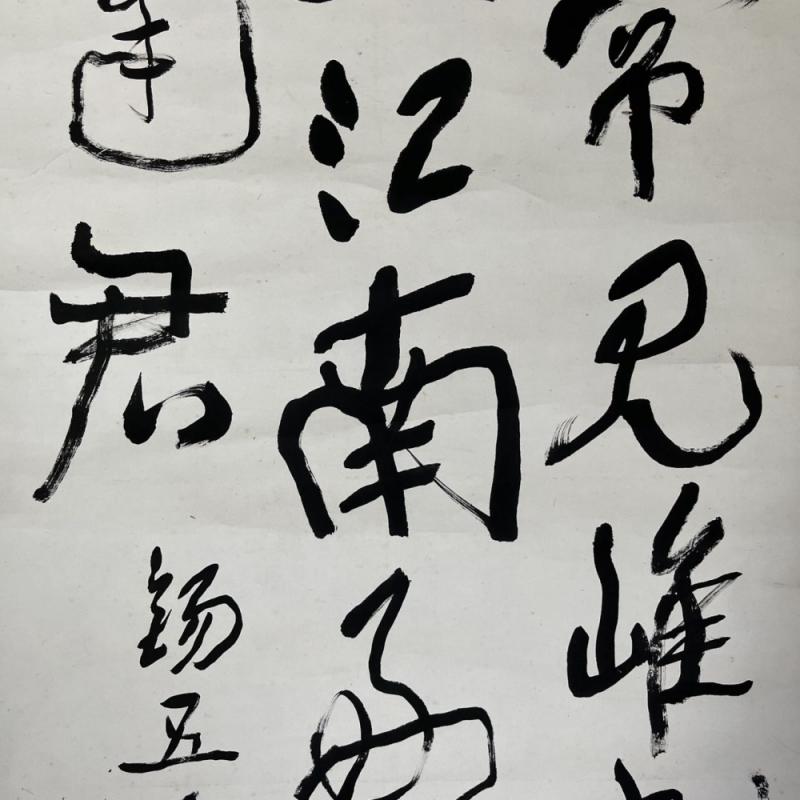 常见崔
江南好
逢君
錫五